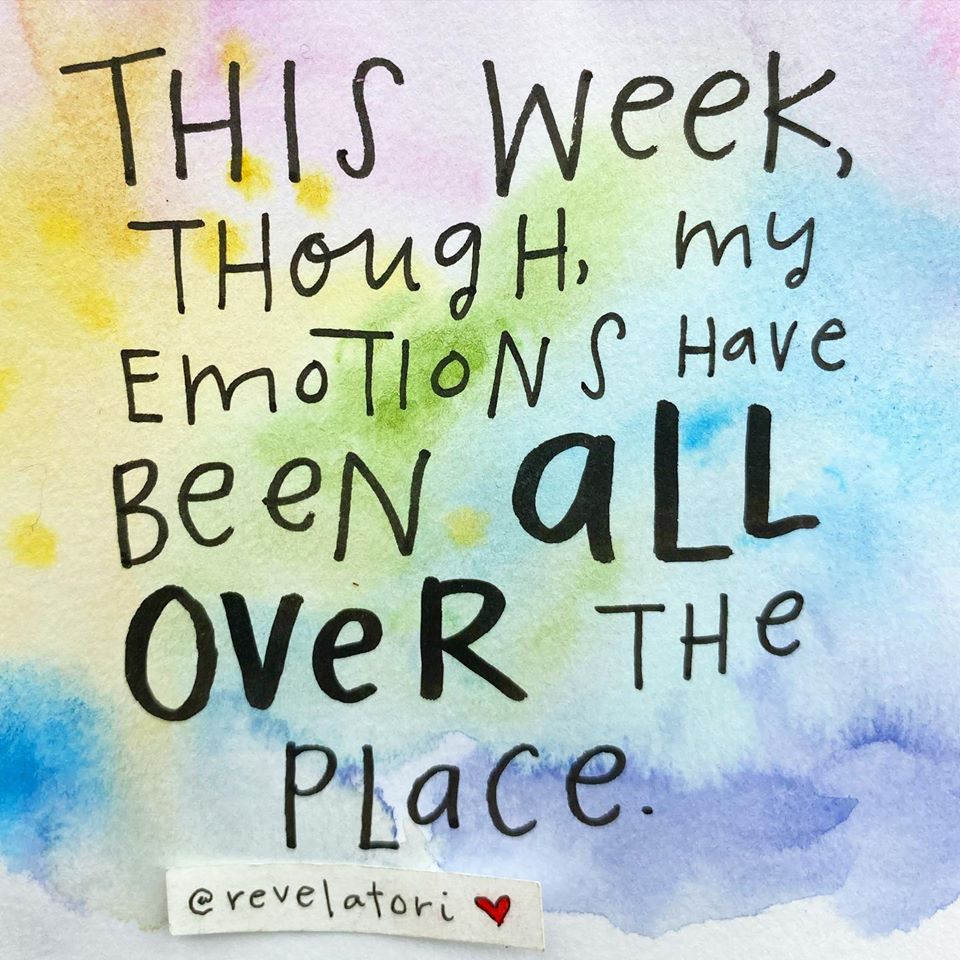 THIS Week,
THougH, my
EmoTIONS Have
BeeN aLL
OVeR THe
PLaCe.
@revelatori